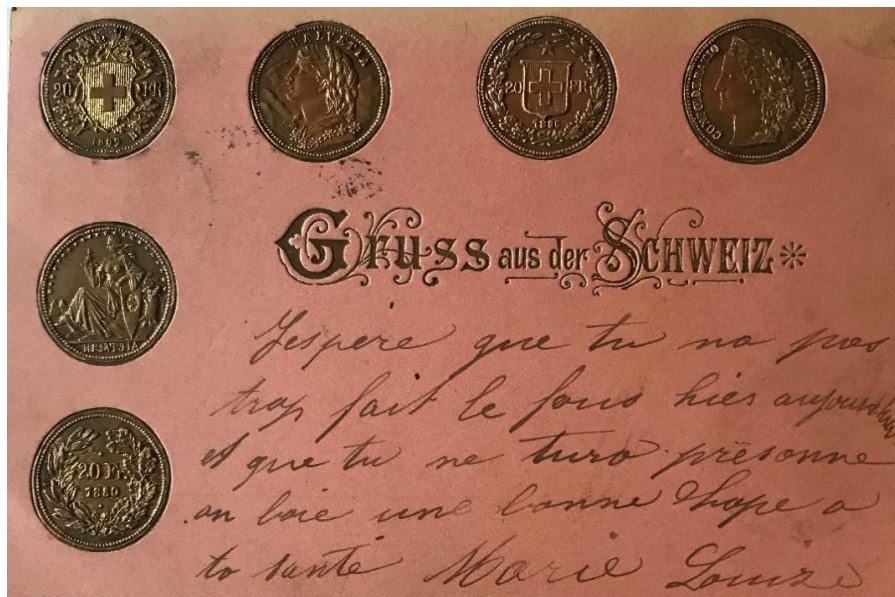 20 FR
1899
HELVETIA
20 FR
CONFŒDERATIO HELVETICA
GRUSS aus der SCHWEIZ
Jespere que tu na pas
trop fait le fous hier aujourdhui
et que tu ne turo présonne
on boie une bonne shope a
to santé Marie Louize
20 Fr.
1880